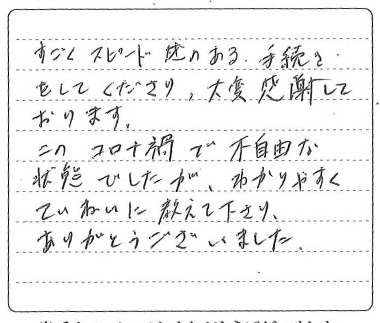 すごくスピード感のある、手続き
をしてくださり、大変感謝して
おります。
この コロナ禍で不自由な
状態でしたが、わかりやすく
ていねいに教えて下さり、
ありがとうございました。